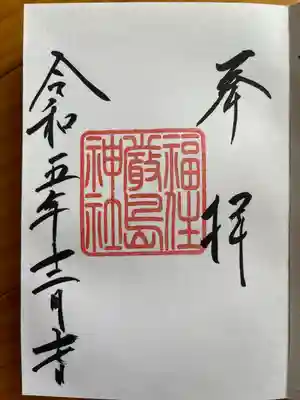 奉拝
福住
厳島
神社
令和五年十二月吉